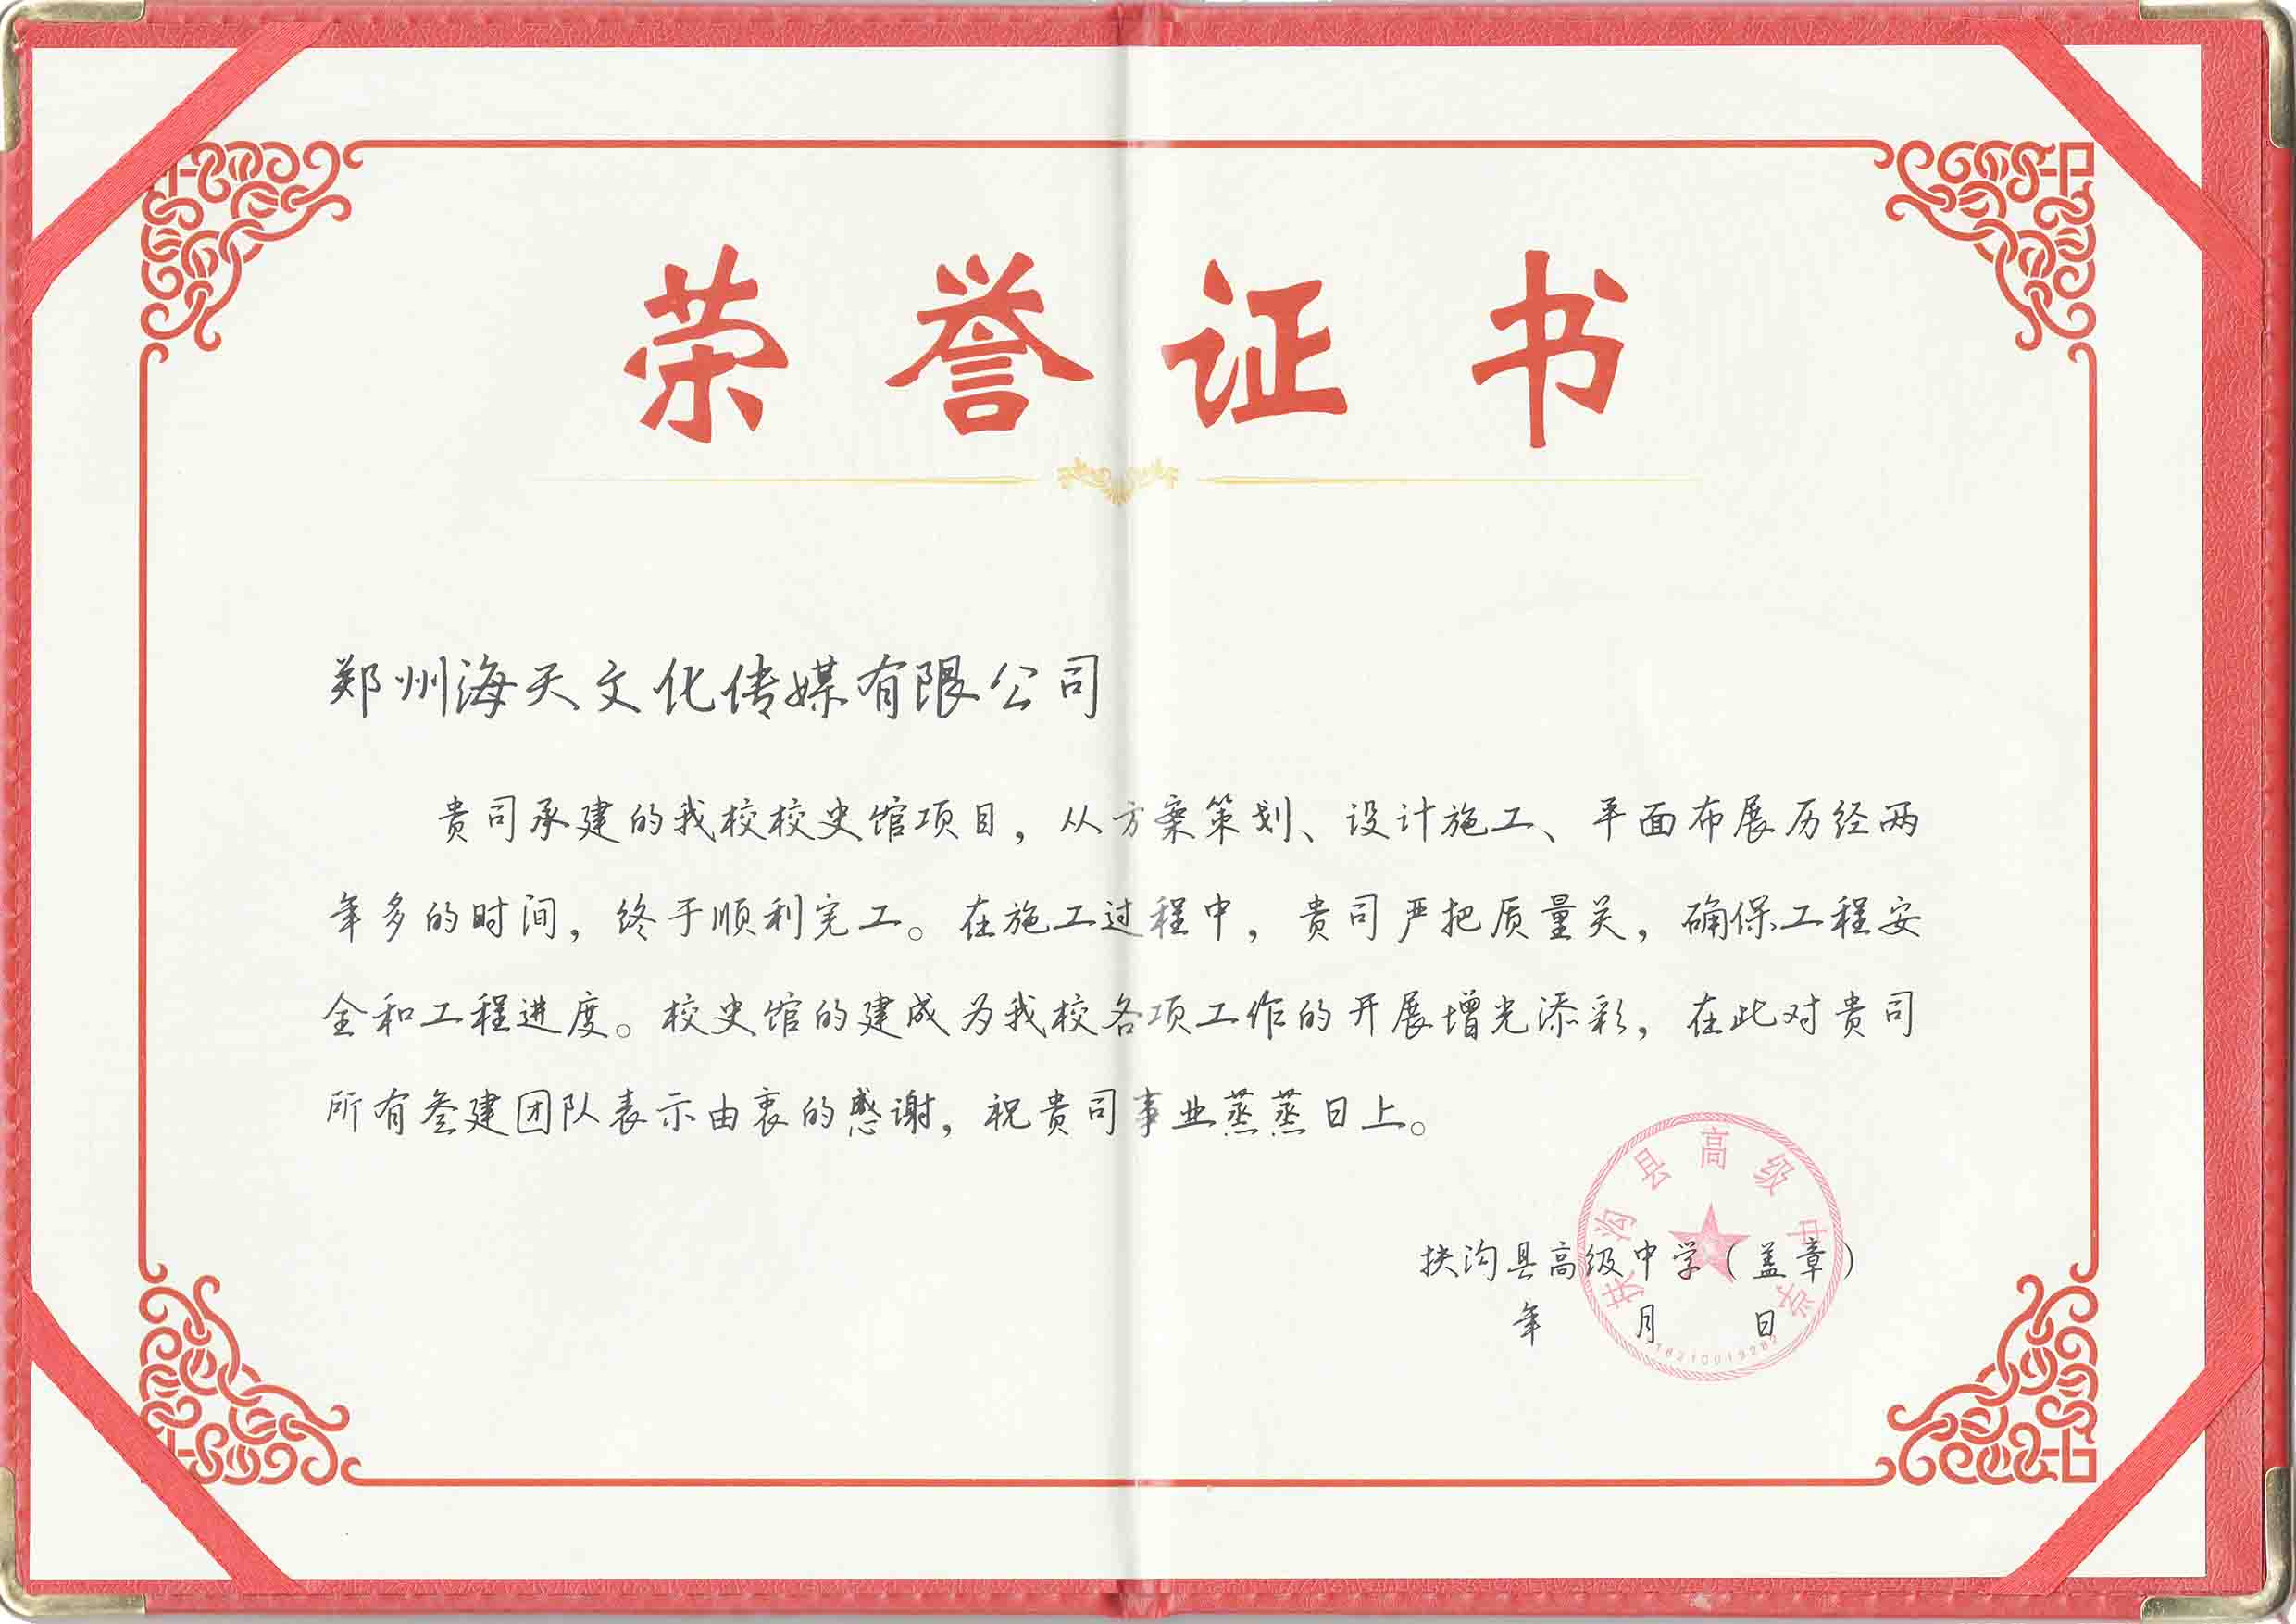 荣誉证书
郑州海天文化传媒有限公司
贵司承建的我校校史馆项目，从方案策划、设计施工、平面布展历经两
年多的时间，终于顺利完工。在施工过程中，贵司严把质量关，确保工程安
全和工程进度。校史馆的建成为我校各项工作的开展增光添彩，在此对贵司
所有参建团队表示由衷的感谢，祝贵司事业蒸蒸日上。
扶沟县高级中学（盖章）
年 月 日
扶沟县高级中学